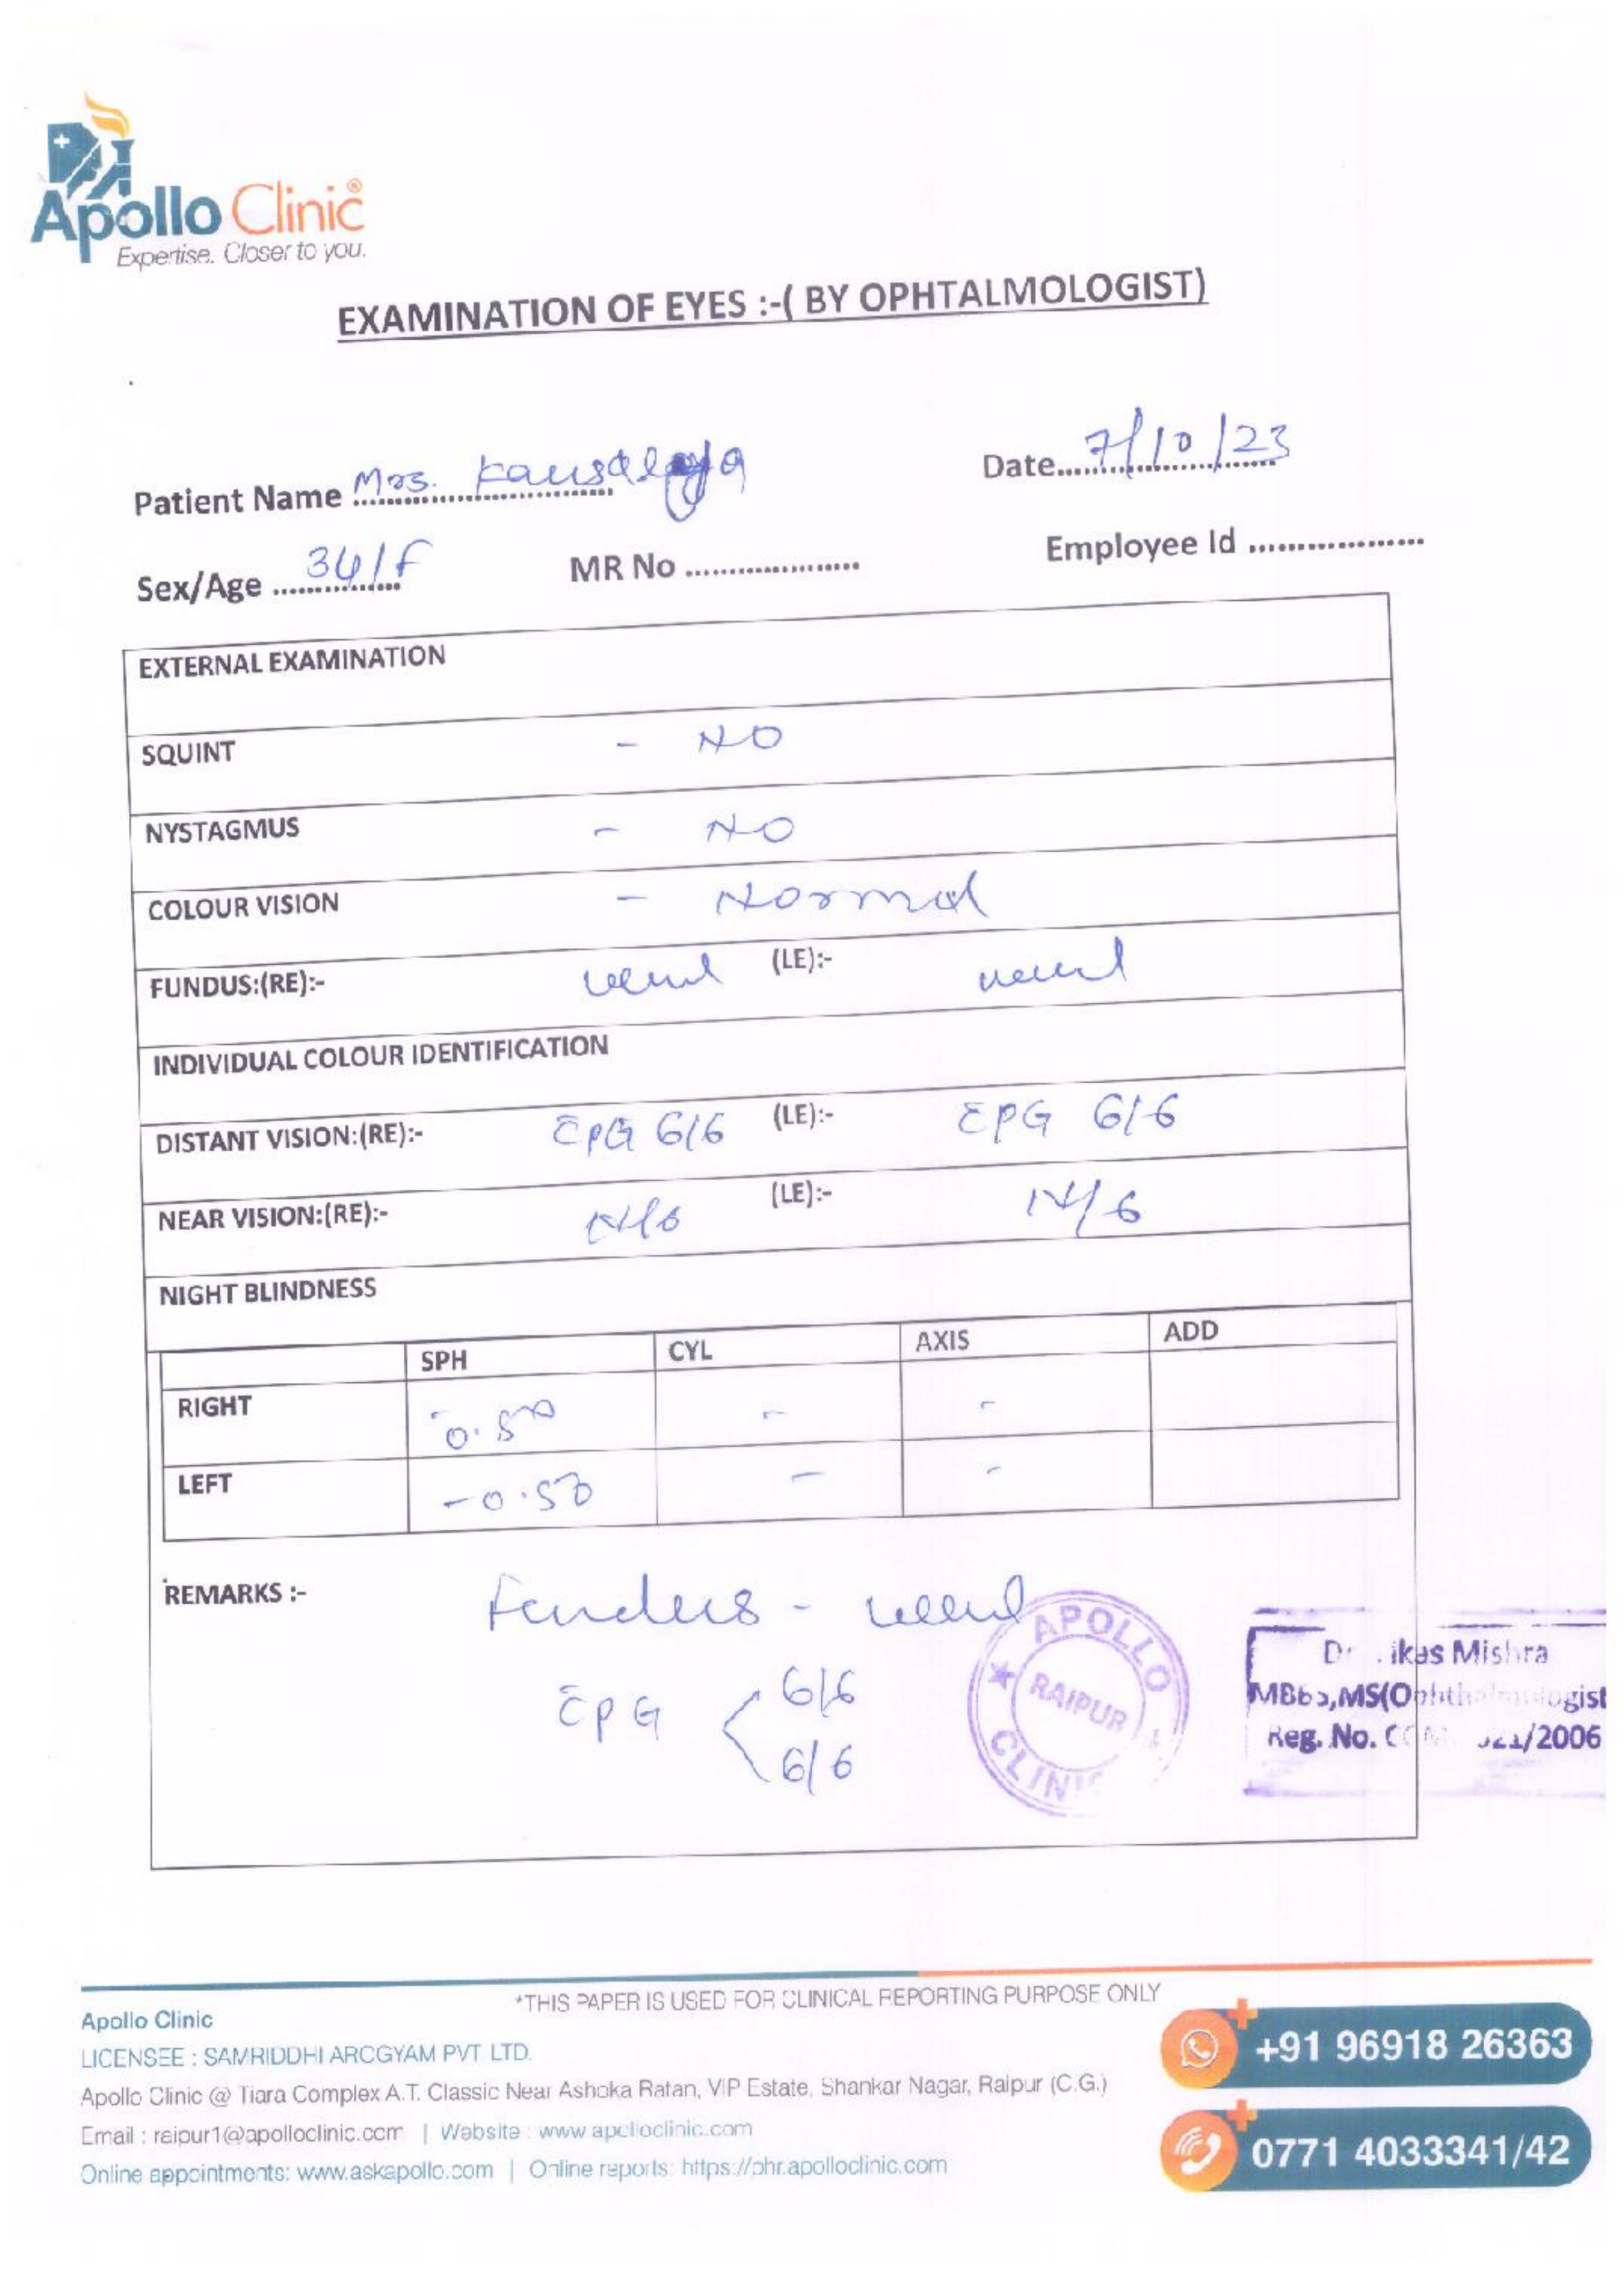 Apollo Clinic®
Expertise. Closer to you.
EXAMINATION OF EYES :-( BY OPHTALMOLOGIST)
Patient Name Mrs. Kausalya Date 7/10/23
Sex/Age 34/F MR No Employee Id
EXTERNAL EXAMINATION
SQUINT - NO
NYSTAGMUS - NO
COLOUR VISION - Normal
FUNDUS:(RE):- (LE):-
INDIVIDUAL COLOUR IDENTIFICATION
DISTANT VISION:(RE):- c̄PG 6/6 (LE):- c̄PG 6/6
NEAR VISION:(RE):- N/6 (LE):- N/6
NIGHT BLINDNESS
SPH CYL AXIS ADD
RIGHT -0.50 - -
LEFT -0.50 - -
REMARKS :- Fundus -
c̄PG 6/6
6/6
APOLLO CLINIC RAIPUR
Mishra
Reg. No. /2006
*THIS PAPER IS USED FOR CLINICAL REPORTING PURPOSE ONLY
Apollo Clinic
LICENSEE : SAMRIDDHI AROGYAM PVT. LTD.
Apollo Clinic @ Tiara Complex A.T. Classic Near Ashoka Ratan, VIP Estate, Shankar Nagar, Raipur (C.G.)
Email : raipur1@apolloclinic.com | Website : www.apolloclinic.com
Online appointments: www.askapollo.com | Online reports: https://phr.apolloclinic.com
+91 96918 26363
0771 4033341/42